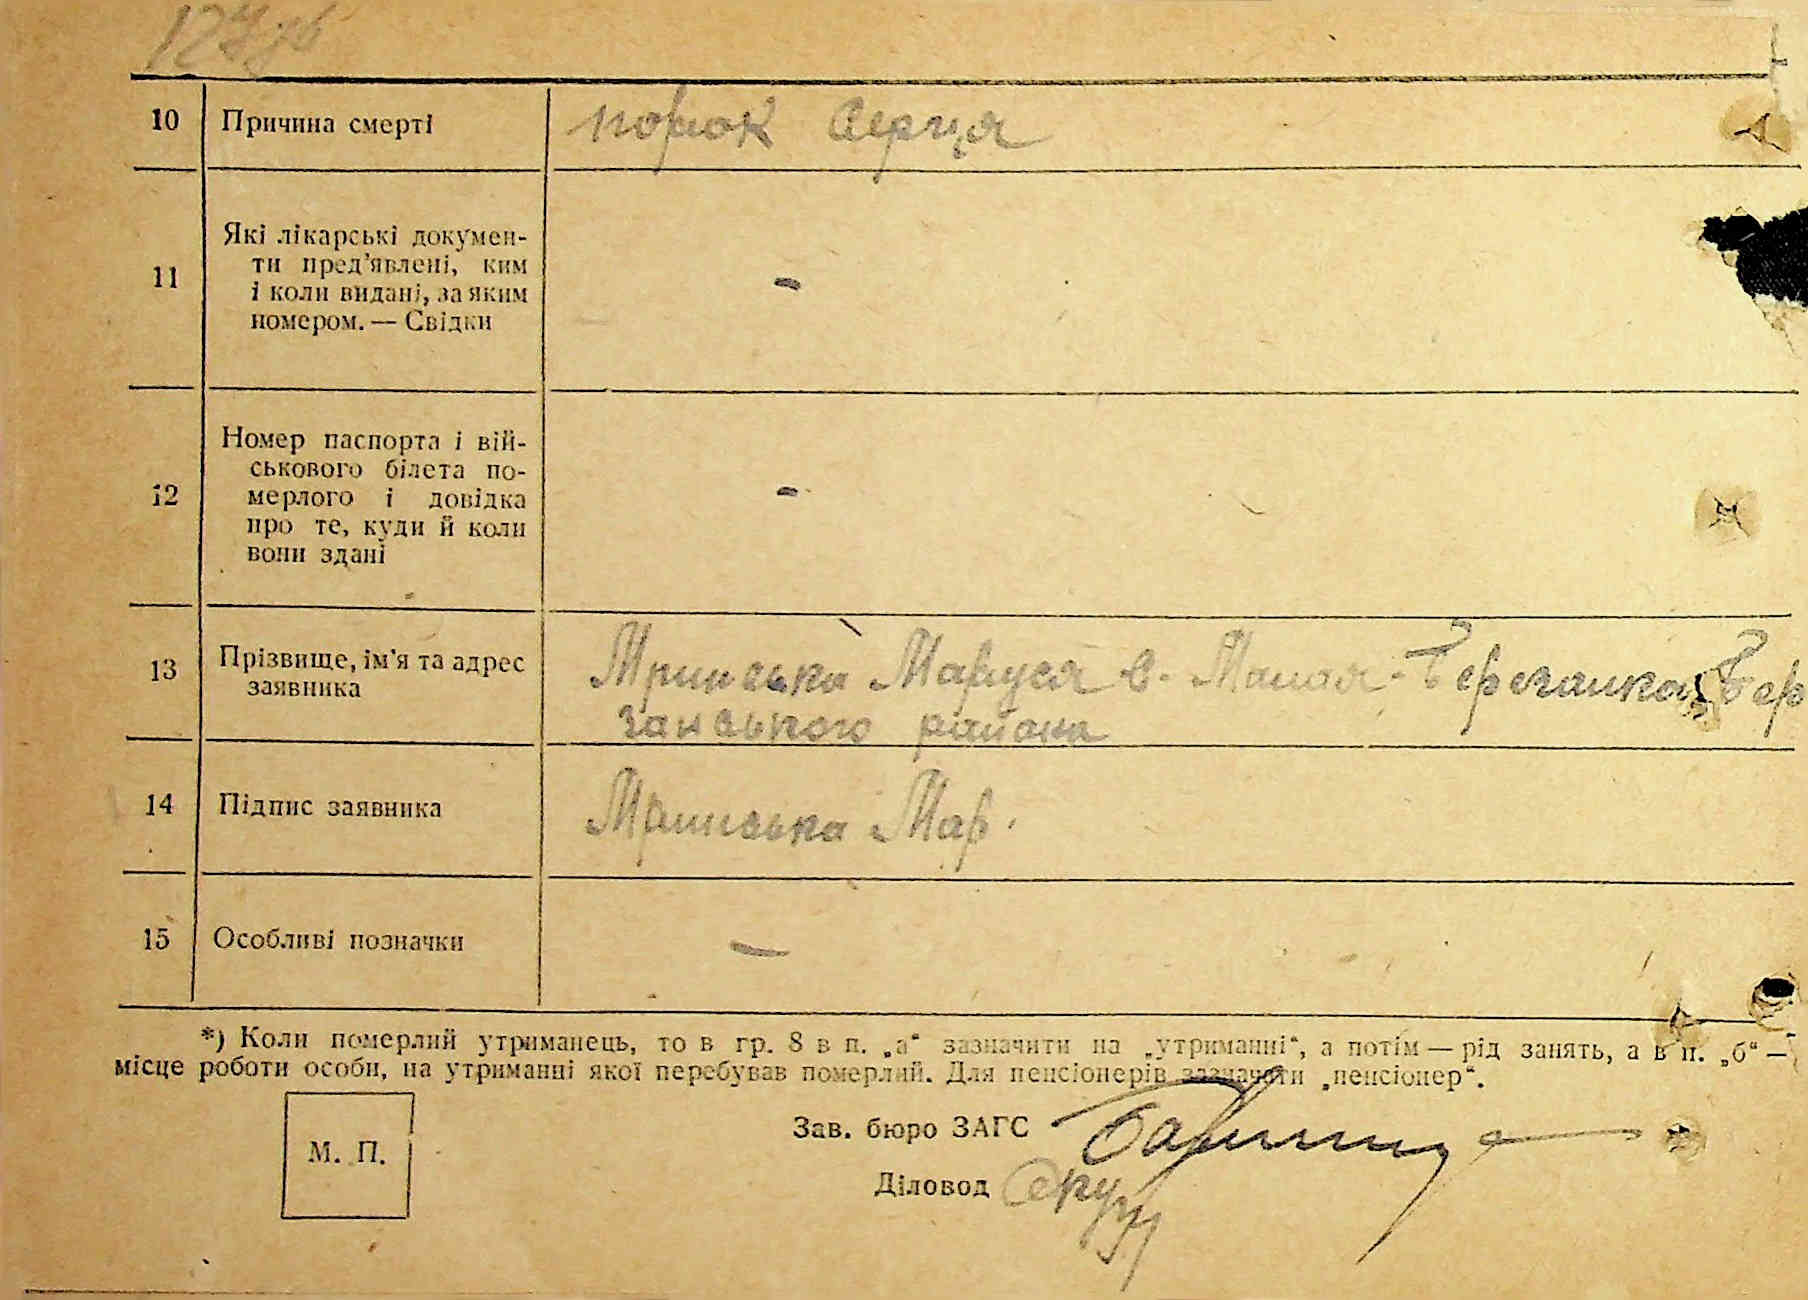 10 Причина смерті порок серця
11 Які лікарські докумен-
ти пред'явлені, ким
і коли видані, за яким
номером. — Свідки -
12 Номер паспорта і вій-
ськового білета по-
мерлого і довідка
про те, куди й коли
вони здані -
13 Прізвище, ім'я та адрес Мринська Маруся с. Малая-Березанка Бер
заявника занського района
14 Підпис заявника Мринська Мар.
15 Особливі позначки —
*) Коли померлий утриманець, то в гр. 8 в п. „а“ зазначити на „утриманні“, а потім — рід занять, а в п. „б“ —
місце роботи особи, на утриманні якої перебував померлий. Для пенсіонерів зазначати „пенсіонер“.
Зав. бюро ЗАГС
М. П.
Діловод